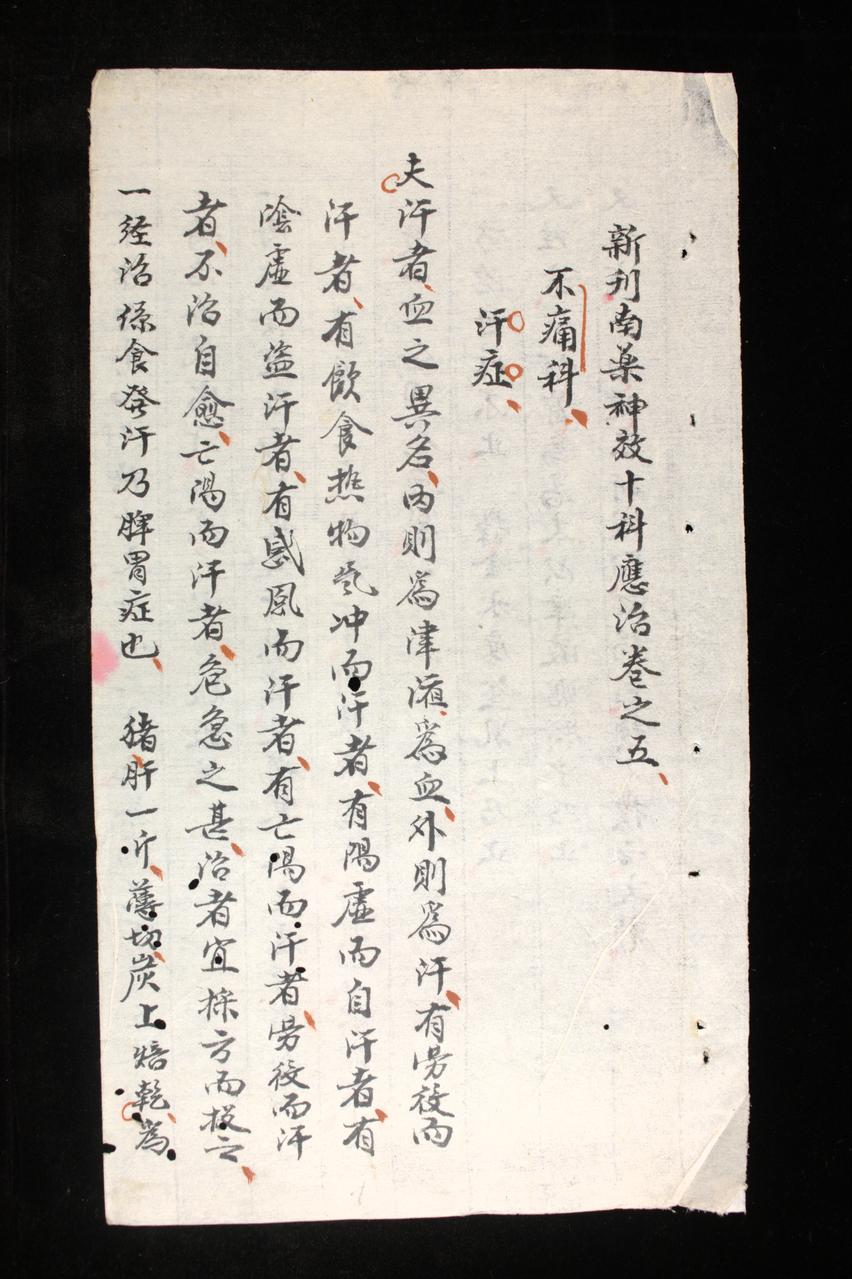 新刊南藥神效十科應治卷之五
不痛科
汗症
夫汗者血之異名內則爲津液爲血外則爲汗有勞役而
汗者有飲食热物氣冲而汗者有陽虛而自汗者有
陰虛而盗汗者有感風而汗者有亡陽而汗者勞役而汗
者不治自愈亡陽而汗者危急之甚治者宜採方而投之
一経治係食發汗乃脾胃症也 猪肝一斤薄切炭上焙乾為